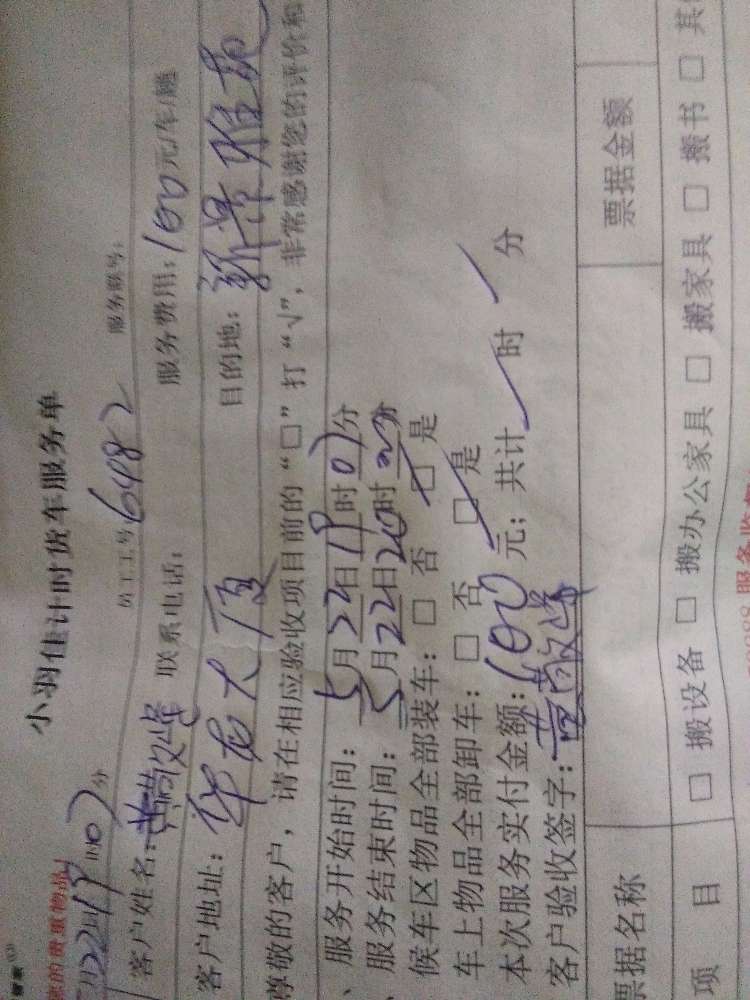 您的贵重物品
小羽佳计时货车服务单
22日19时07分 员工工号 6482 服务联号:
客户姓名: 黄敬峰 联系电话: 服务费用: 160元/车/趟
客户地址: 华龙大厦 目的地: 新景雅苑
尊敬的客户,请在相应验收项目前的“□”打“√”,非常感谢您的评价和
、服务开始时间: 5月22日19时07分
、服务结束时间: 5月22日20时20分
候车区物品全部装车: □ 否 ☑ 是
车上物品全部卸车: □ 否 ☑ 是
本次服务实付金额: 160 元; 共计 时 分
客户验收签字: 黄敬峰
票据名称 票据金额
项 目 □ 搬设备 □ 搬办公家具 □ 搬家具 □ 搬书 □ 其他